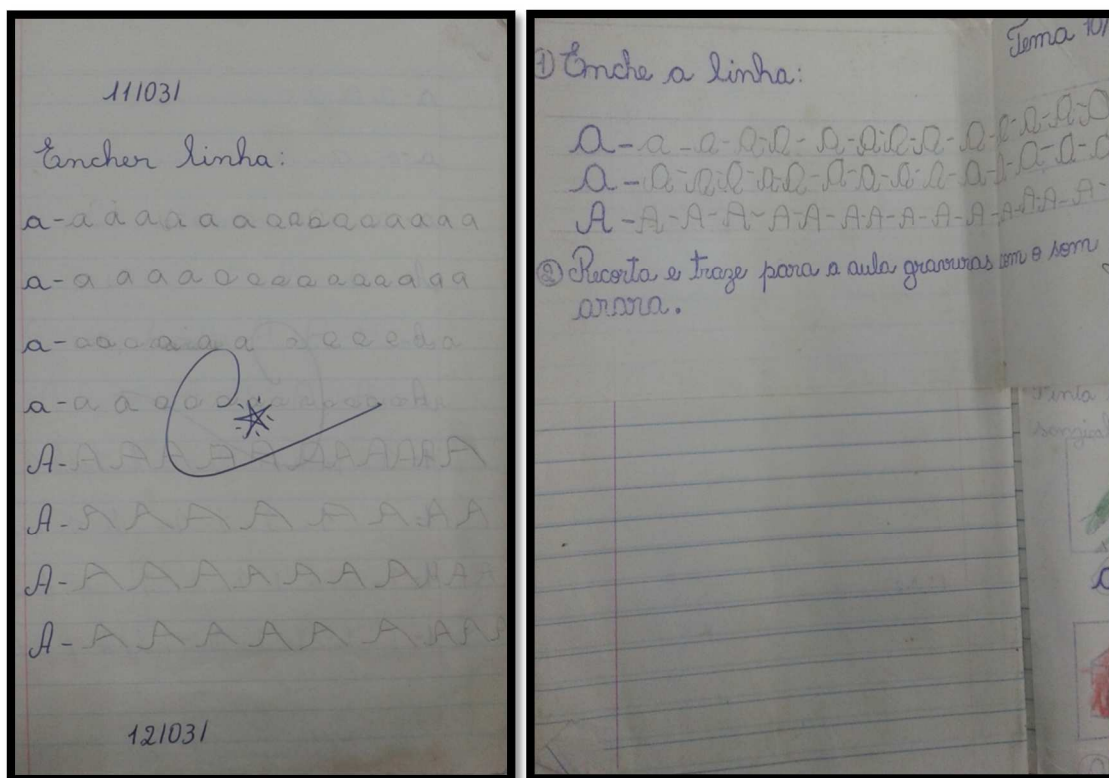 11/03/
Encher linha:
a - a a a a a a a a a a a a a a a
a - a a a a a a a a a a a a a a
a - a a a a a a a a a a a a
a - a a a a a a a a a a a a a
A - A A A A A A A A A A
A - A A A A A A A A
A - A A A A A A A A A
A - A A A A A A A A A
12/03/
Tema 10/
1) Enche a linha:
a - a - a - a - a - a - a - a - a - a - a - a - a - a
a - a - a - a - a - a - a - a - a - a - a - a - a - a
A - A - A - A - A - A - A - A - A - A - A - A - A - A
2) Recorta e traze para a aula gravuras com o som
Pinta